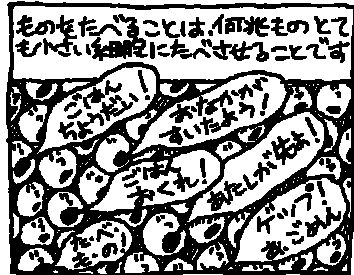 ものをたべることは、何兆ものとて
も小さい細胞にたべさせることです
ごはん
ちょうだい!
おなかが
すいたよう!
ごはん
おくれ!
あたしが先よ!
ゲップ!
あ、ごめん
たべ
もの!